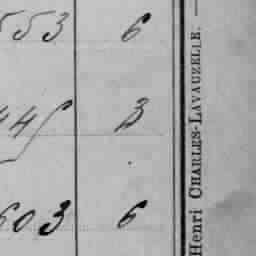 553 6
445 3
603 6
Henri CHARLES-LAVAUZELLE. —